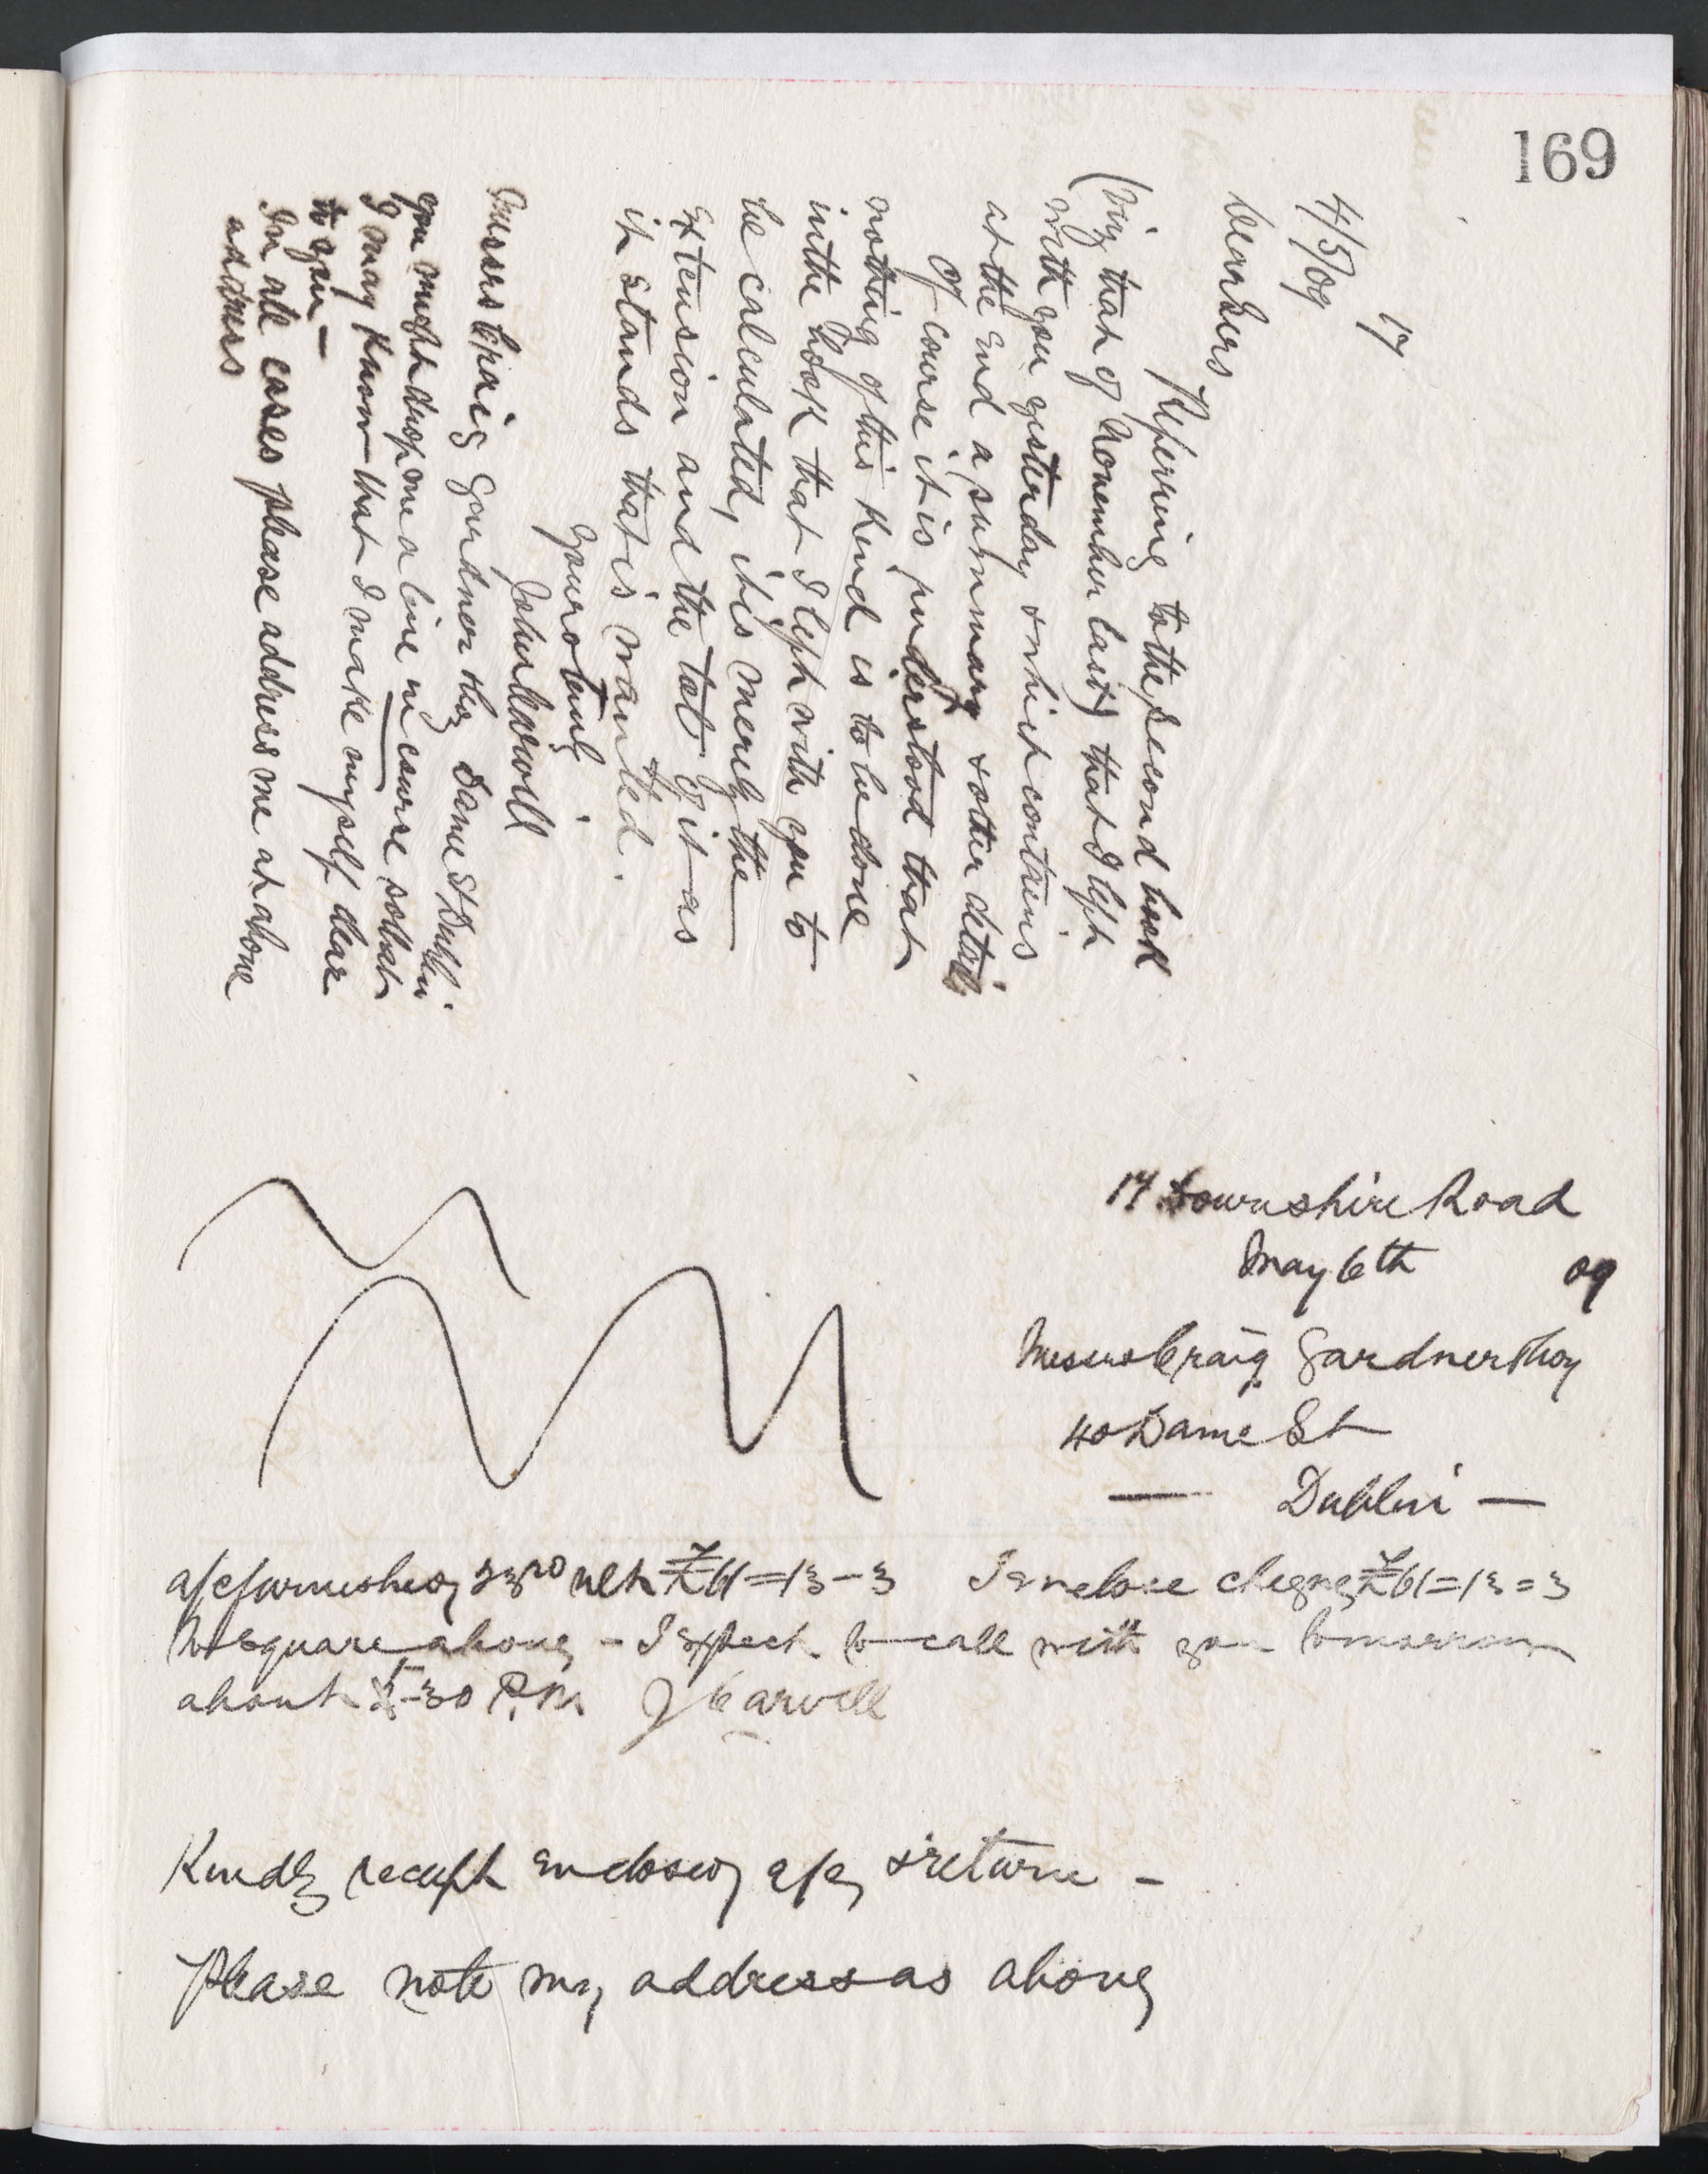 169
17
4/5/09
Dear Sirs
Referring to the second book
(viz that of November last) that I left
with you yesterday & which contains
at the end a summary & other details
Of course it is understood that
nothing of this kind is to be done
in the book that I left with you to
be calculated, it is merely the
extension and the tot of it as
it stands that is wanted.
Yours truly
John Carvill
Messrs Craig Gardner & Coy Dame St Dublin.
you might drop me a line in course so that
I may know that I make myself clear
to you —
In all cases please address me at above
address
17 Downshire Road
May 6th 09
Messrs Craig Gardner & Coy
40 Dame St
— Dublin —
a/c furnished 23rd ult £61=13-3 I enclose cheque £61=13=3
to square above - I expect to call with you tomorrow
about 5-30 P.M. J Carvill
Kindly receipt enclosed a/c & return -
Please note my address as above